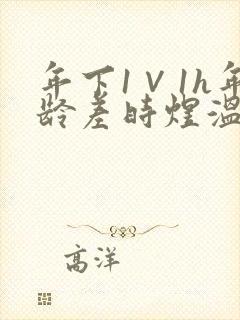 年下1V1h年
龄差时煜温
高洋